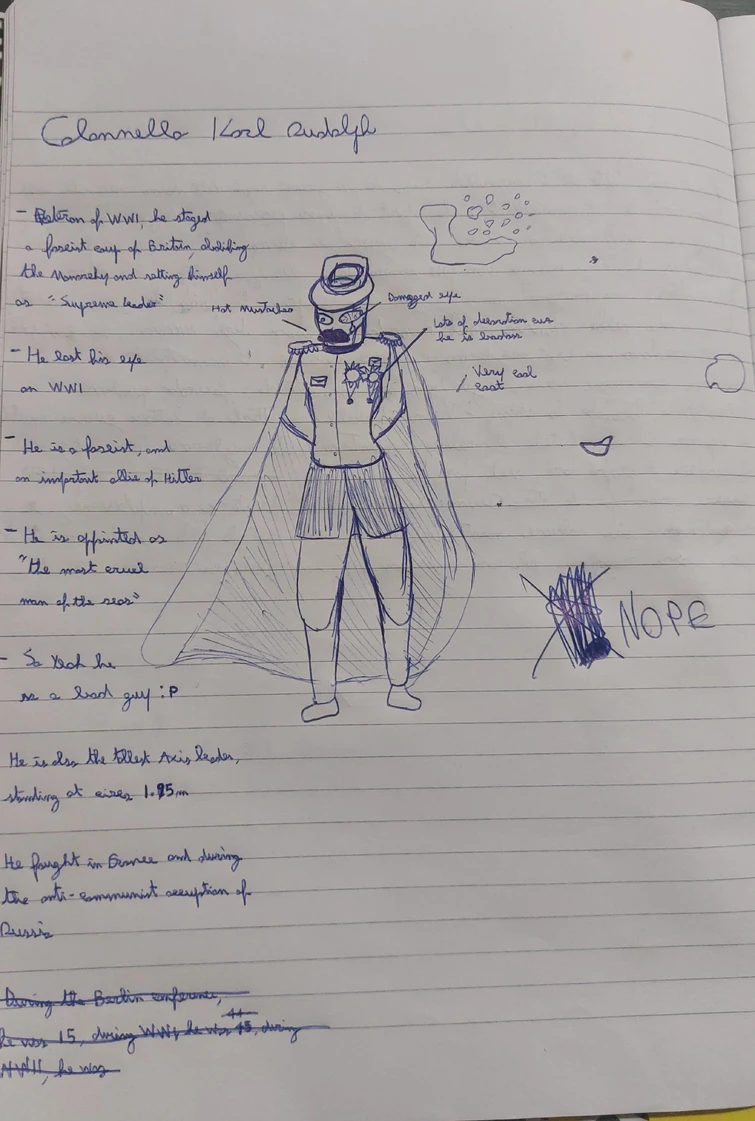 Colonnello Karl Rudolph
- Veteran of WWI, he staged
a fascist coup of Britain, abolishing
the Monarchy and setting himself
as "Supreme leader"
Hot Mustaches
Damaged eye
Lots of decoration cus
he is badass
- He lost his eye
on WWI
Very cool
coat
- He is a fascist, and
an important allie of Hitler
- He is appointed as
"the most cruel
man of the
NOPE
- So Yeah he
is a bad guy :P
He is also the tallest Axis leader,
standing at circa 1.95m
He fought in France and during
the anti-communist occuption of
Russia
During the Berlin conference,
he was 15, during WWI, he was 45, during
44
WWII, he was